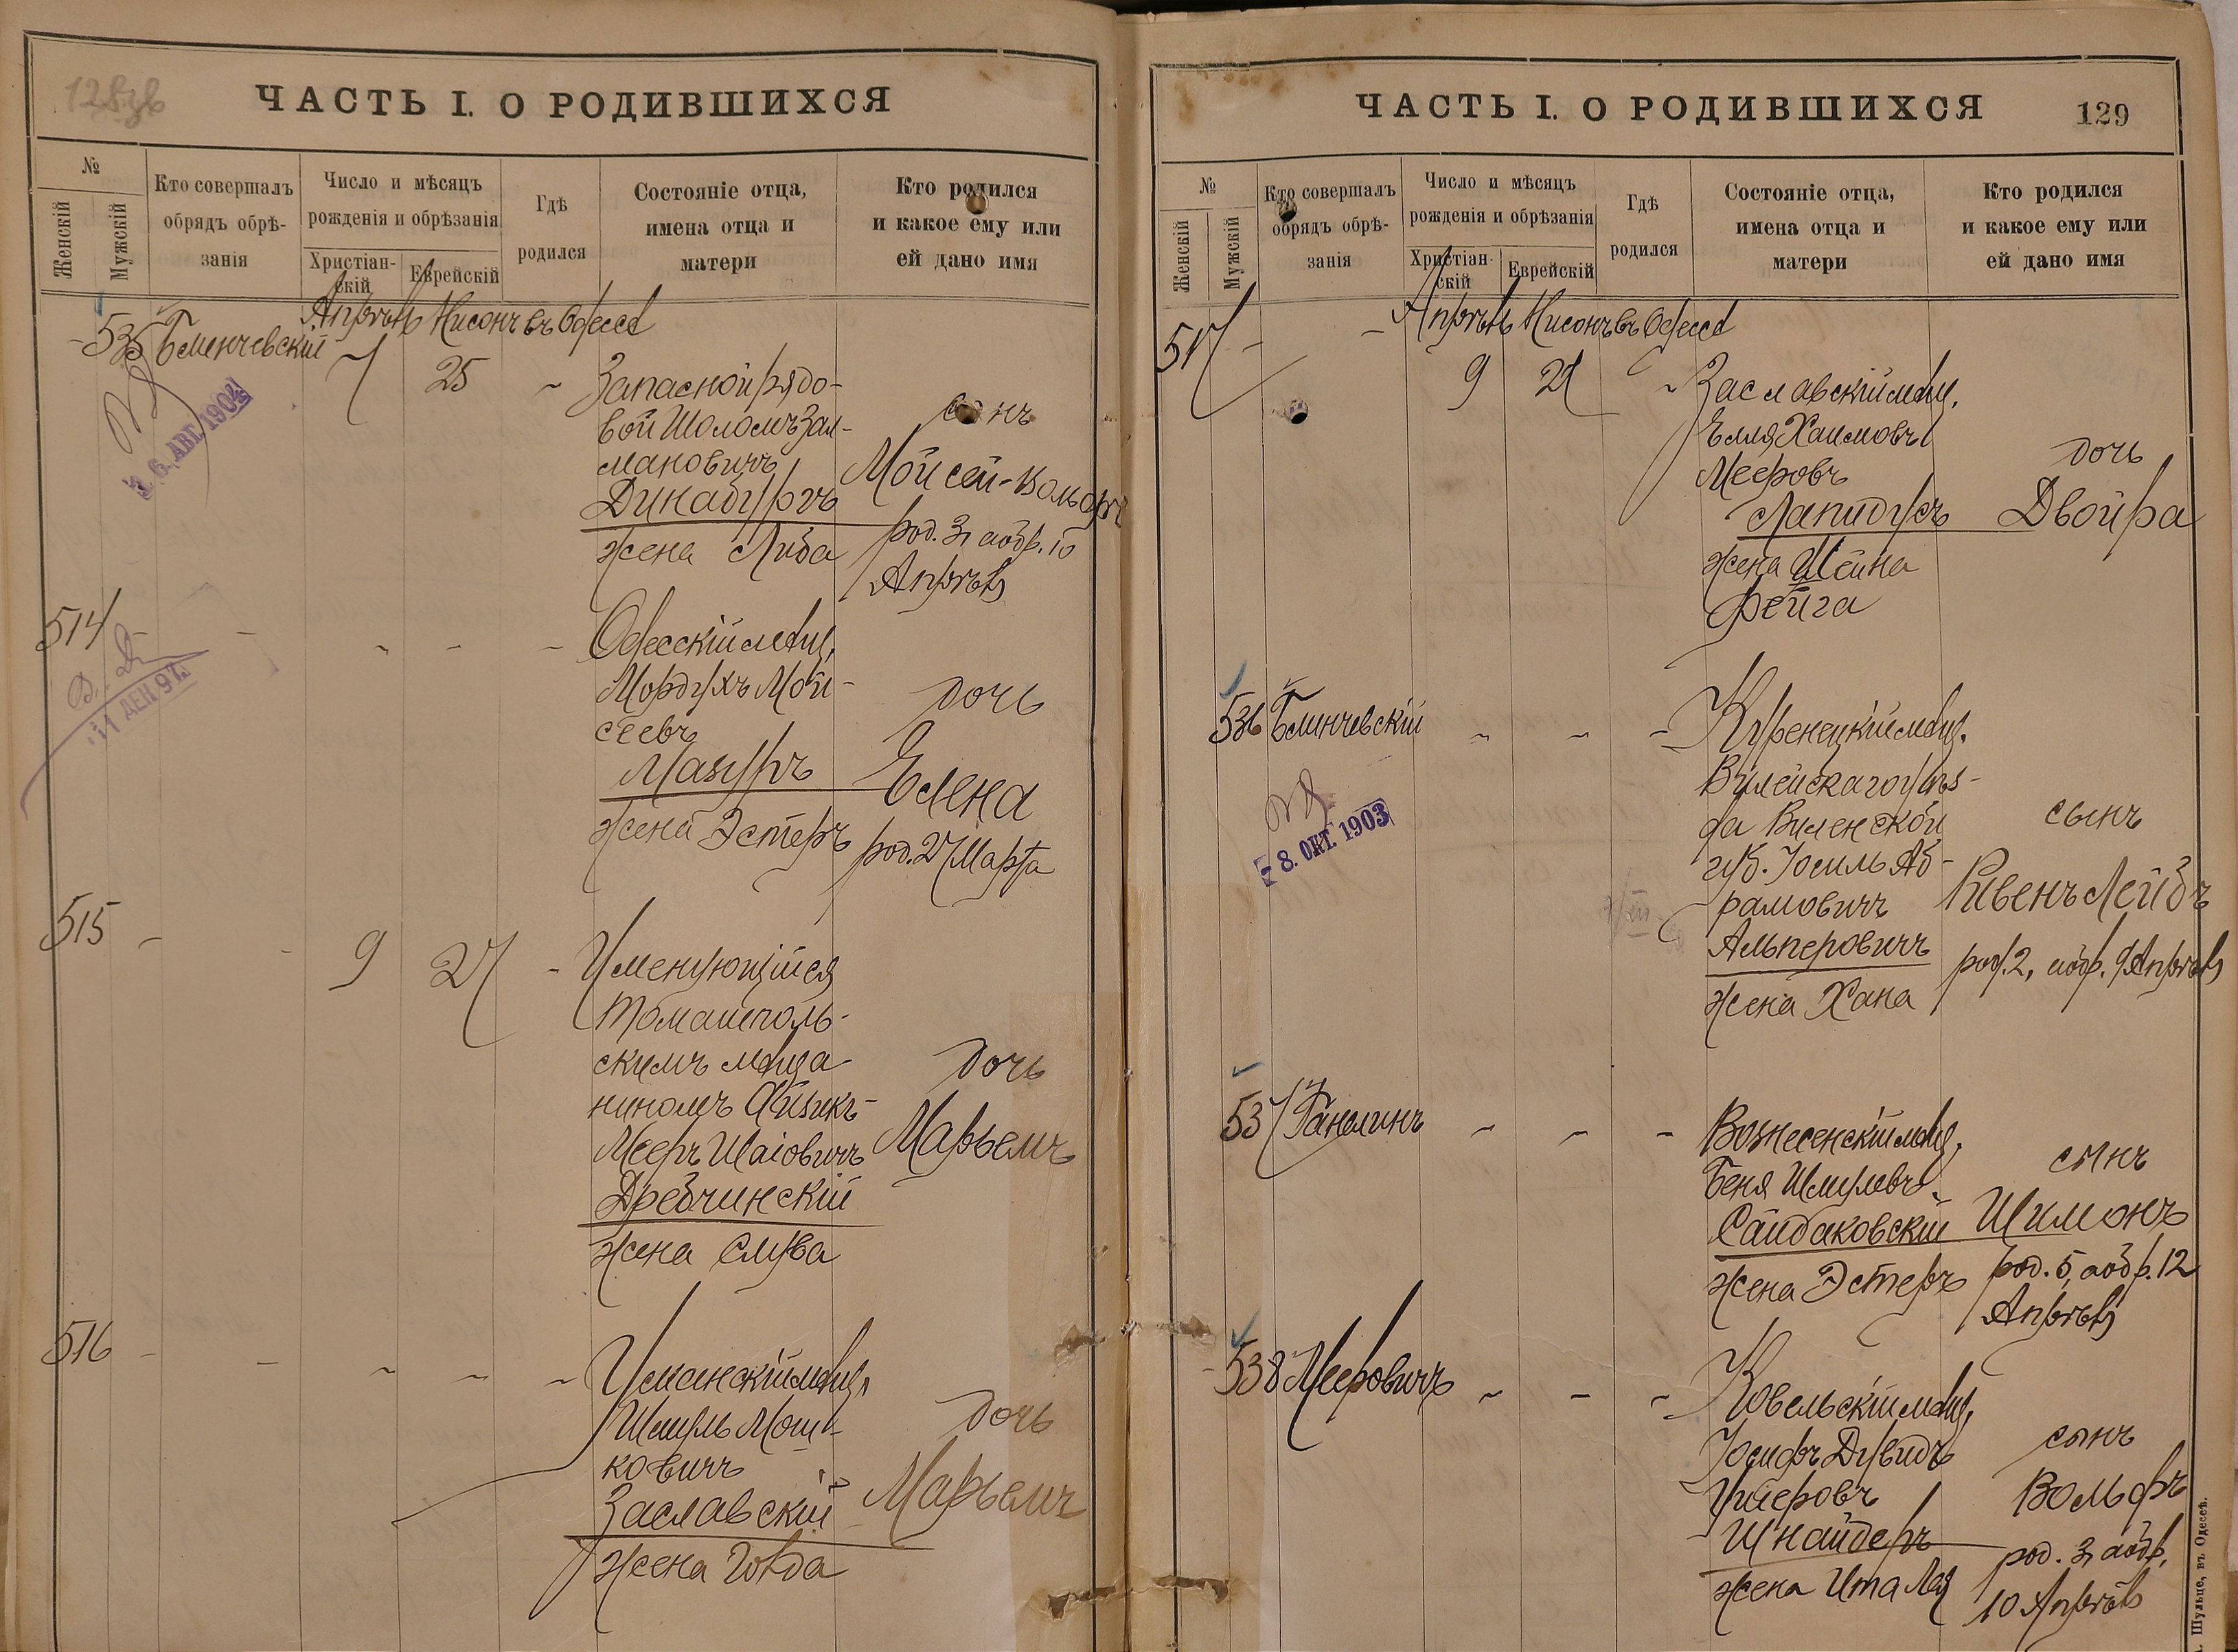 128об
ЧАСТЬ I. О РОДИВШИХСЯ
№
Женскій
Мужскій
Кто совершалъ
обрядъ обрѣ-
занія
Число и мѣсяцъ
рожденія и обрѣзанія
Христіан-
скій
Еврейскій
Гдѣ
родился
Состояніе отца,
имена отца и
матери
Кто родился
и какое ему или
ей дано имя
Апрѣль Нисонъ въ Одессѣ
535 Блинчевскій 7 25
Запасной рядо-
вой Шоломъ Зал-
мановичъ
Динабургъ
жена Либа
сынъ
Мойсей-Вольфъ
род. 3, а обр. 10
Апрѣля
16. АВГ. 1904
514
Одесскій мѣщ.
Мордухъ Мой-
сеевъ
Мазуръ
жена Эстеръ
дочь
Елена
род. 27 Марта
11 ДЕК 97
515 9 27
Именующійся
Томашполь-
скимъ мѣща-
ниномъ Айзикъ-
Мееръ Шаіовичъ
Дребчинскій
жена Слува
дочь
Марьемъ
516
Уманскій мѣщ.
Шмуль Мош-
ковичъ
Заславскій
жена Голда
дочь
Марьемъ
ЧАСТЬ I. О РОДИВШИХСЯ
129
№
Женскій
Мужскій
Кто совершалъ
обрядъ обрѣ-
занія
Число и мѣсяцъ
рожденія и обрѣзанія
Христіан-
скій
Еврейскій
Гдѣ
родился
Состояніе отца,
имена отца и
матери
Кто родился
и какое ему или
ей дано имя
Апрѣль Нисонъ въ Одессѣ
517 9 27
Заславскій мѣщ.
Еля Хаимовъ
Мееровъ
Лапидусъ
жена Шейна
Фейга
дочь
Двойра
536 Блинчевскій
Куренецкій мѣщ.
Вилейскаго уѣз-
да Виленской
губ. Іосиль Аб-
рамовичъ
Альперовичъ
жена Хана
сынъ
Рувенъ Лейбъ
род. 2, а обр. 9 Апрѣля
8. ОКТ. 1903
537 Ранлинъ
Вознесенскій мѣщ.
Беня Шмулевъ
Сайдаковскій
жена Эстеръ
сынъ
Шимонъ
род. 5, а обр. 12
Апрѣля
538 Мееровичъ
Ковельскій мѣщ.
Іосифъ Дувидъ
Шнайдеръ
жена Ита Лея
сынъ
Вольфъ
род. 3, а обр.
10 Апрѣля
Шульце, въ Одессѣ.